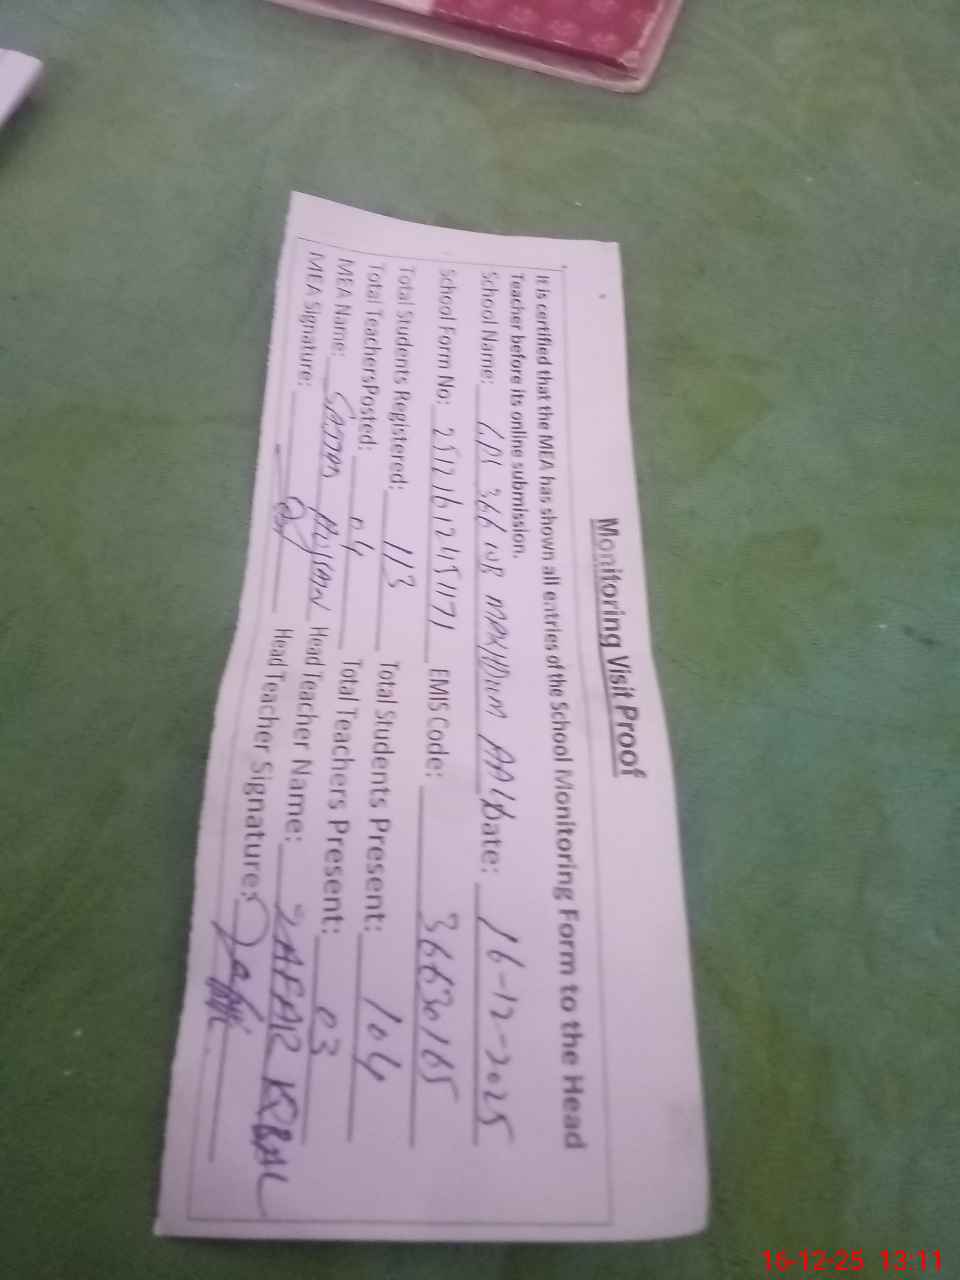 Monitoring Visit Proof
It is certified that the MEA has shown all entries of the School Monitoring Form to the Head
Teacher before its online submission.
School Name: 366 WB Date: 16-12-2025
School Form No: EMIS Code: 36630165
Total Students Registered: 113 Total Students Present: 104
Total TeachersPosted: 04 Total Teachers Present: 03
MEA Name: SAJJAD HUSSAIN Head Teacher Name: ZAFAR IQBAL
MEA Signature: Head Teacher Signature:
16-12-25 13:11